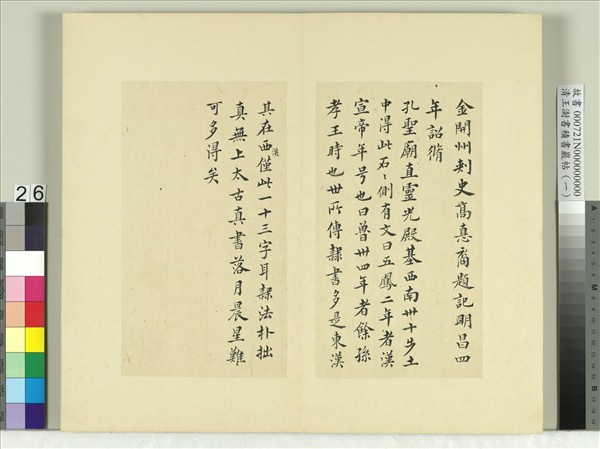 金開州刺史高惪裔題記明昌四
年詔脩
孔聖廟直靈光殿基西南卅十步土
中得此石〻側有文曰五鳳二年者漢
宣帝年号也曰魯卅四年者餘孫
孝王時也世所傳隸書多是東漢
其在西漢僅此一十三字耳隸法朴拙
真無上太古真書落月晨星難
可多得矣
故書 000721N000000000
清王澍書積書巖帖(一)
26